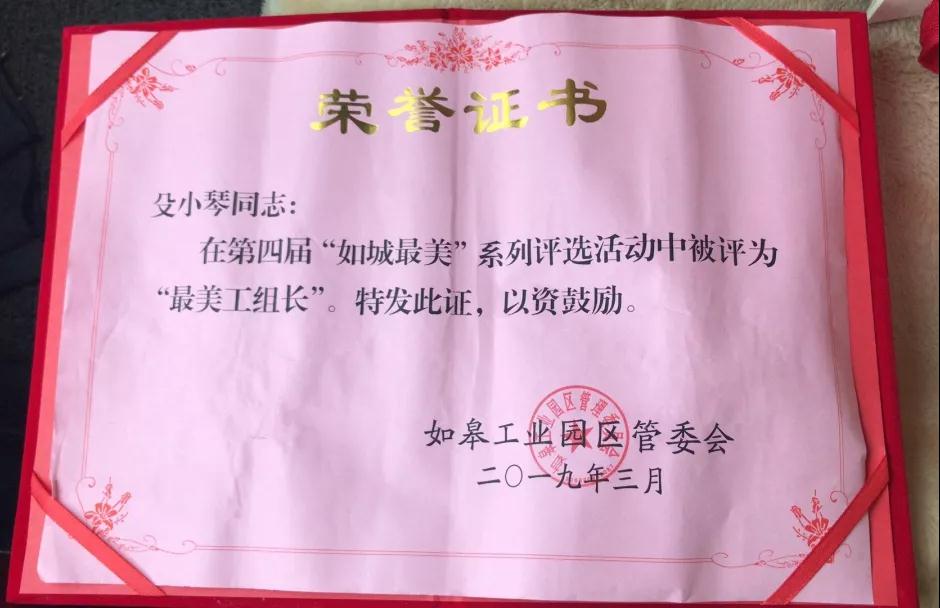 荣誉证书
殳小琴同志：
在第四届“如城最美”系列评选活动中被评为
“最美工组长”。特发此证，以资鼓励。
如皋工业园区管委会
二〇一九年三月